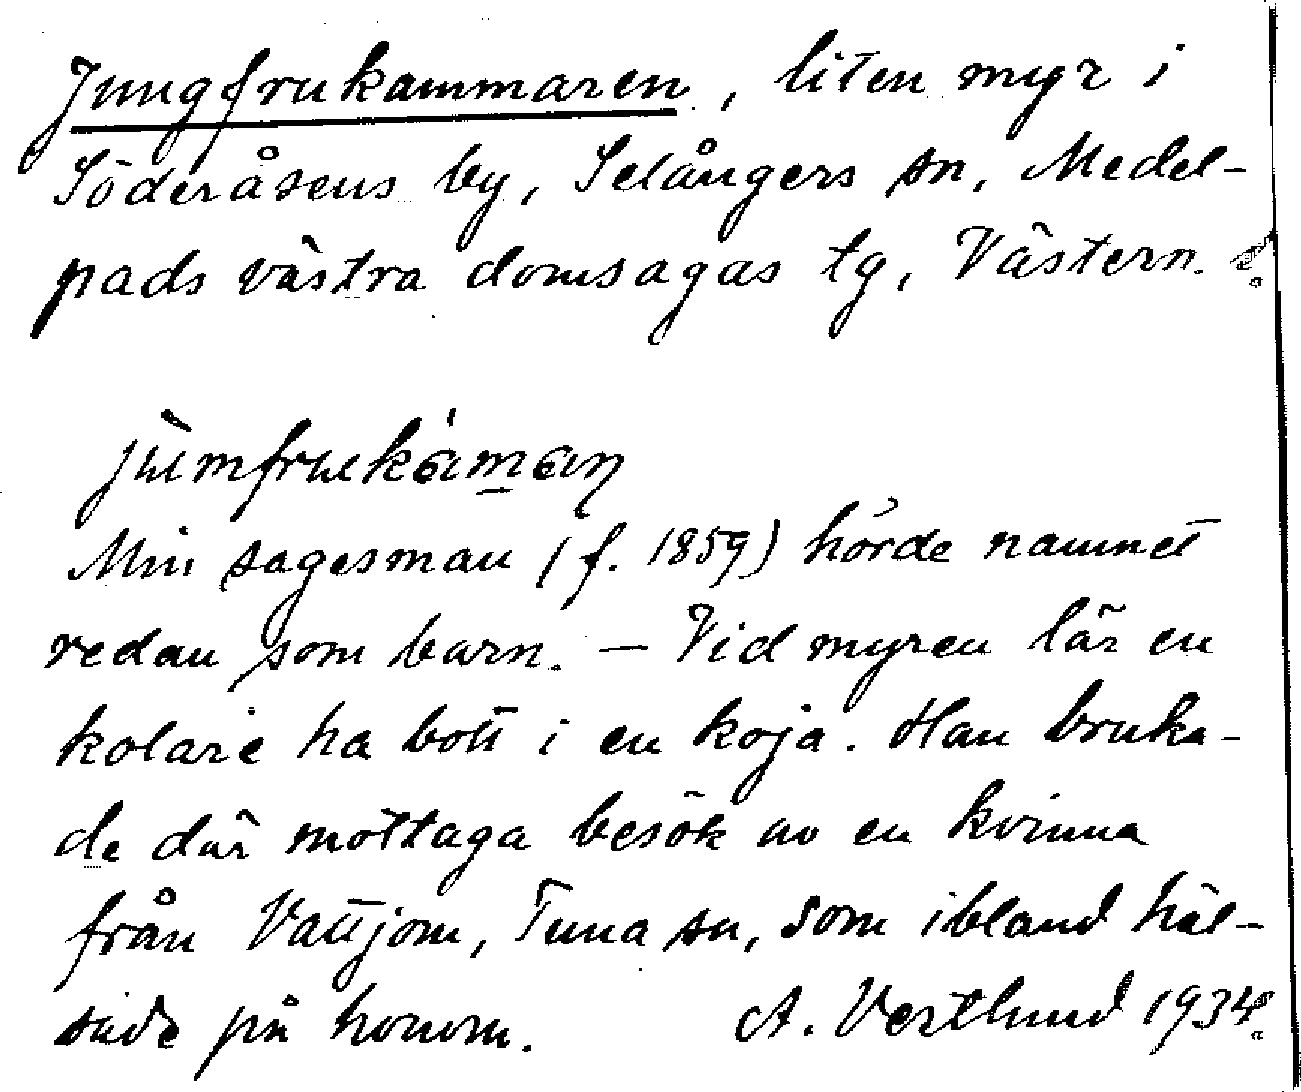 Jungfrukammaren, liten myr i
Söderåsens by, Selångers sn, Medel-
pads västra domsagas tg, Västern. l.
jùmfrukáman
Min sagesman (f. 1859) hörde namnet
redan som barn. — Vid myren lär en
kolare ha bott i en koja. Han bruka-
de där mottaga besök av en kvinna
från Vattjom, Tuna sn, som ibland häl-
sade på honom. A. Vestlund 1934.